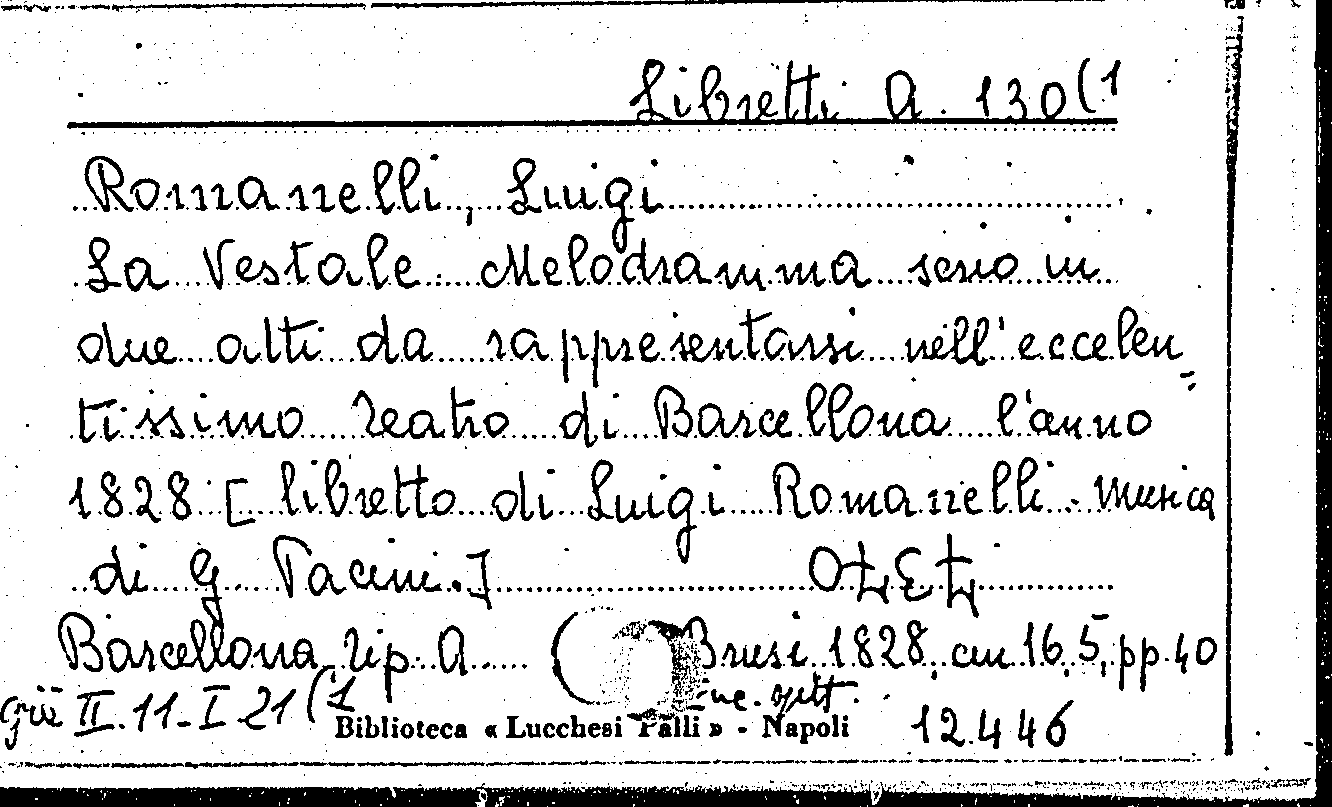 Libretti A. 130(1
Romanelli, Luigi
La Vestale. Melodramma serio in
due atti da rappresentarsi nell'eccelen=
tissimo Teatro di Barcellona l'anno
1828. [libretto di Luigi Romanelli. Musica
di G Pacini.]
Barcellona, Tip. A Brusi 1828, cm 16,5, pp. 40
già II. 11-I 21(1
12.446
Biblioteca « Lucchesi Palli » - Napoli